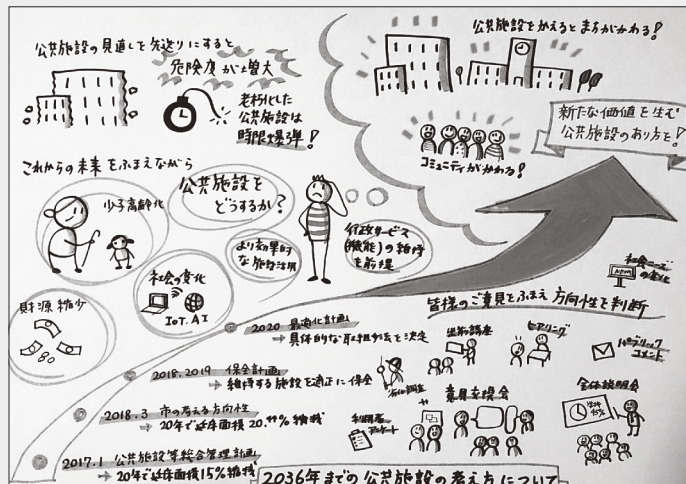 公共施設の見直しを先送りにすると
危険度が増大
老朽化した
公共施設は
時限爆弾!
公共施設をかえるとまちがかわる!
コミュニティがかわる!
新たな価値を生む
公共施設のあり方を!
これからの未来をふまえながら
少子高齢化
公共施設を
どうするか?
より効果的
な施設活用
行政サービス
(機能)の維持
を前提
社会の変化
IoT.AI
財源縮少
社会ニーズ
の変化
皆様のご意見をふまえ方向性を判断
2020 最適化計画
→具体的な取組方法を決定
2018.2019 保全計画
→維持する施設を適正に保全
2018.3 市の考える方向性
→20年で延床面積20.44%縮減
2017.1 公共施設等総合管理計画
→20年で延床面積15%縮減
出前講座
ヒアリング
パブリック
コメント
意見交換会
全体説明会
利用者
アンケート
2036年までの公共施設の考え方について